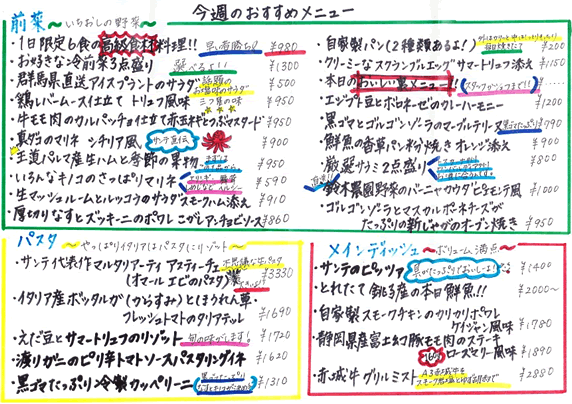 今週のおすすめメニュー
前菜 〜いちおしの野菜〜
・1日限定6食の高級食材料理!! 早い者勝ち!! ¥980
・お好きな冷前菜3点盛り 選べるよ!! ¥1300
・群馬県直送アイスプラントのサラダ 話題のお塩味のサラダ ¥500
・鶏レバームース仕立て トリュフ風味 三ツ星の味 ¥950
・牛モモ肉のカルパッチョ仕立て赤玉ネギとつぶマスタード ¥950
・真ダコのマリネ シチリア風 サンテ宣伝 ¥900
・王道パルマ産生ハムと季節の果物 ¥950
・いろんなキノコのさっぱりマリネ ¥590
・生マッシュルームとレッコラのサラダスモークハム添え ¥910
・厚切りなすとズッキーニのポワレ こがしアンチョビソース ¥860
・自家製パン(2種類あるよ!) 毎日焼きたて ¥200
・クリーミーなスクランブルエッグ サマートリュフ添え ¥1150
・本日のおいしい裏メニュー!! スタッフがつくります!!
・エジプト豆とボロネーゼのクレーハーモニー ¥1200
・黒ゴマとゴルゴンゾーラのマーブルテリーヌ ¥990
・鮮魚の香草パン粉焼き オレンジ添え ¥900
・厳選サラミ2点盛り ¥800
・鈴木農園野菜のバーニャカウダ ピエモンテ風 ¥1000
・ゴルゴンゾーラとマスカルポーネチーズが
たっぷりの新じゃがのオーブン焼き ¥950
パスタ 〜やっぱりイタリアはパスタにリゾット〜
・サンテ代表作マルタリアーティ アスティーチェ 不思議な生パスタ
(オマール エビのパスタ) ¥3330
・イタリア産ボッタルガ(からすみ)とほうれん草
フレッシュトマトのタリアテッレ ¥1690
・えだ豆とサマートリュフのリゾット 旬の味がします! ¥1720
・渡りガニのピリ辛トマトソースパスタリングイネ ¥1620
・黒ゴマたっぷり冷製カッペリーニ ¥1310
メインディッシュ 〜ボリューム満点〜
・サンテのピッツァ 具がたっぷりでおいしいよ! ¥1400
・とれたて銚子産の本日鮮魚!! ¥2000〜
・自家製スモークチキンのカリカリポワレ
ケイジャン風味 ¥1780
・静岡県産富士幻豚モモ肉のステーキ
ローズマリー風味 ¥1890
・赤城牛グリルミスト ¥2880